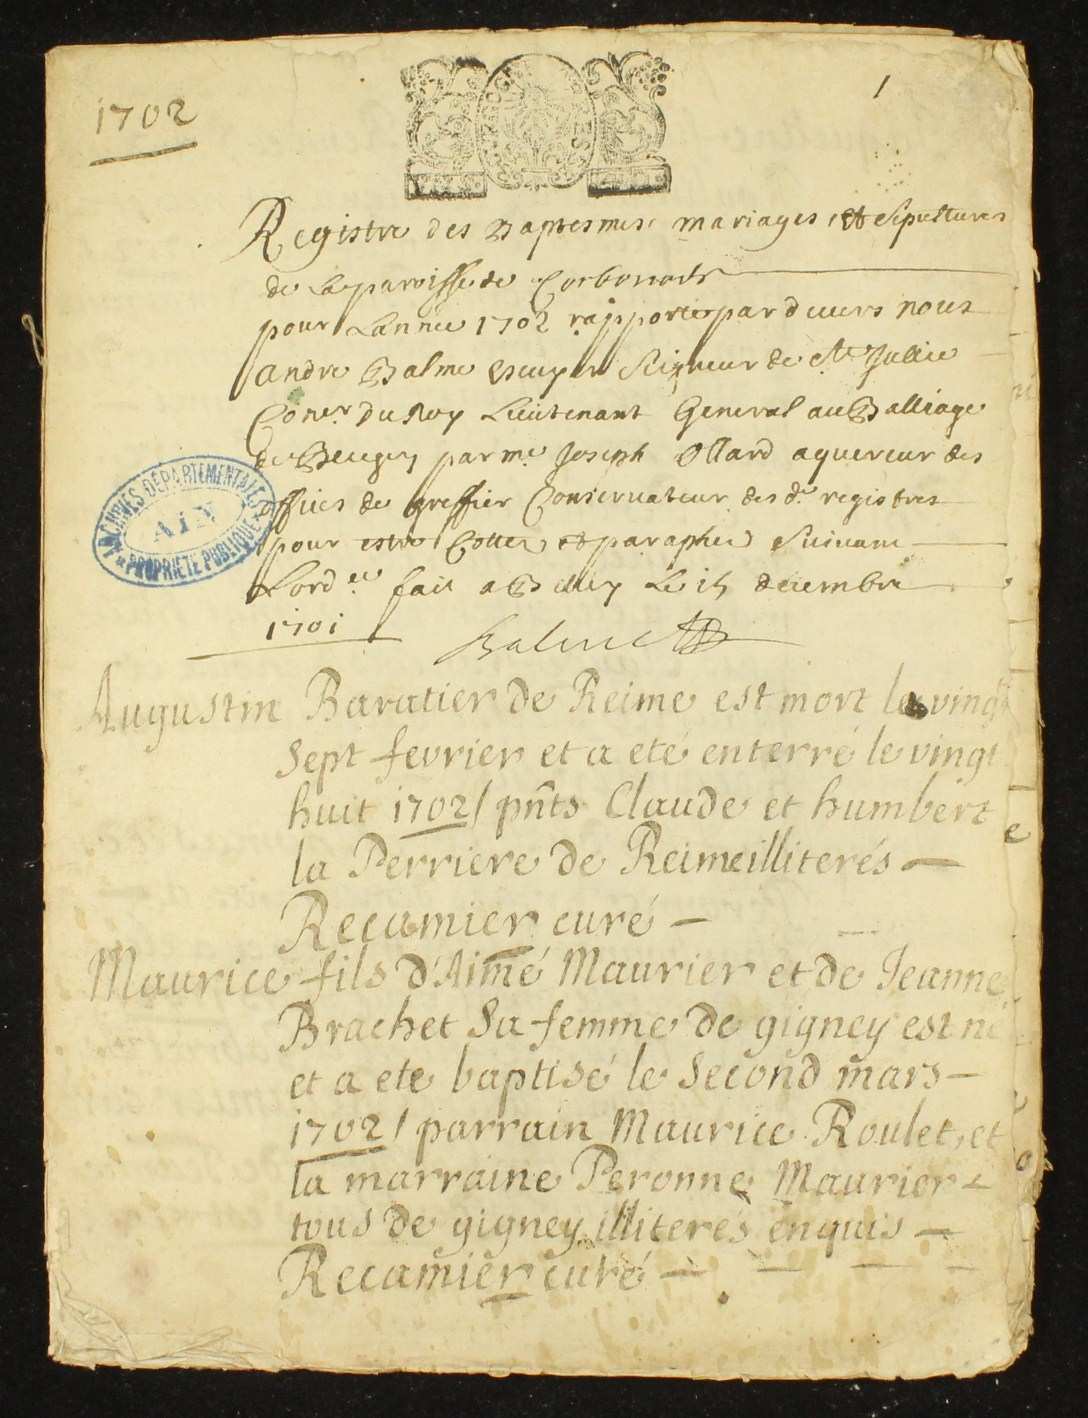 1702
1
Registre des Baptesmes, mariages, et Sepultures
de la paroisse de Corbonod
pour Lannée 1702 rapporté pardevers nous
Andre Balme Escuyer Seigneur de Ste Jullie
Coner du Roy Lieutenant General au Balliage
de Beugey par me Joseph Ollard aquereur des
offices de greffier Conservateur des d. registres
pour estre Cottes et paraphes Suivant
Lord.ce fait a Belley Le 15 decembre
1701
Balme
ARCHIVES DÉPARTEMENTALES
AIN
PROPRIÉTÉ PUBLIQUE
Augustin Baratier de Reime est mort le vingt
sept fevrier et a eté enterré le vingt
huit 1702 / pñts Claude et humbert
la Perriere de Reime illiterés
Recamier curé
Maurice fils d'Aimé Maurier et de Jeanne
Brachet Sa femme de gigney est né
et a ete baptisé le Second mars
1702 / parrain Maurice Roulet, et
la marraine Peronne Maurier
tous de gigney illiterés enquis
Recamier curé